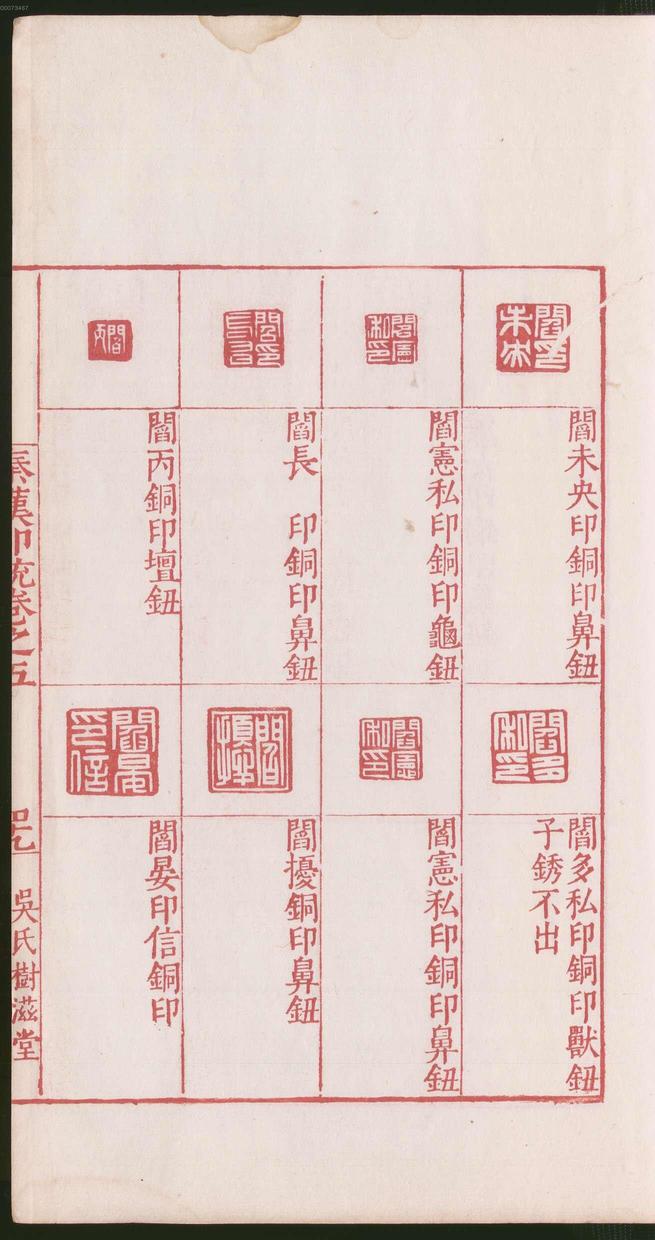 00073467
閻未央印銅印鼻鈕
閻憲私印銅印龜鈕
閻長 印銅印鼻鈕
閻丙銅印壇鈕
閻多私印銅印獸鈕
子銹不出
閻憲私印銅印鼻鈕
閻擾銅印鼻鈕
閻晏印信銅印
秦漢印統卷之五
吳氏樹滋堂